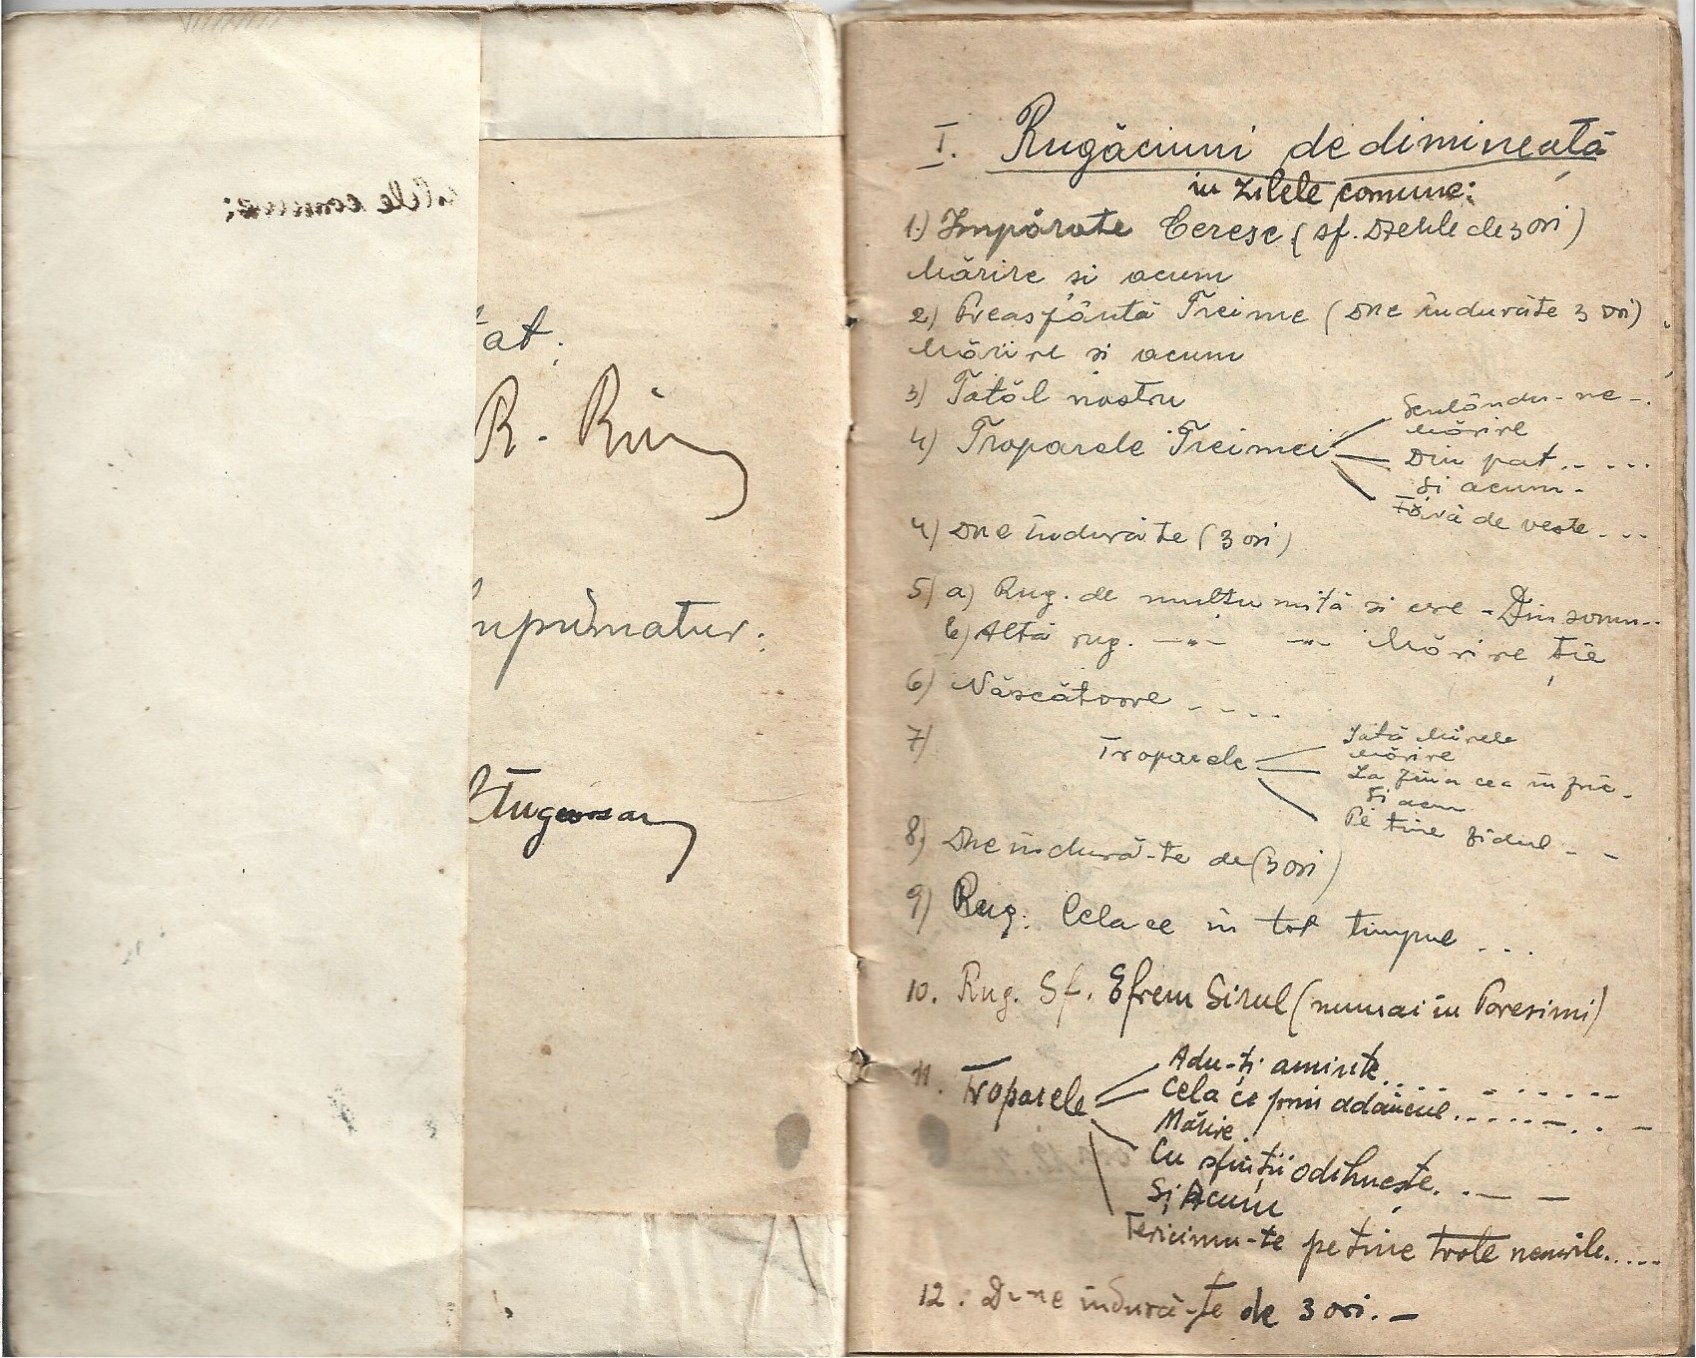 at.
R.
I. Rugăciuni de dimineață
in zilele comune:
1.) Împărate Ceresc (sf. Dzeule de 3 ori)
Mărire si acum
2) Preasfântă Treime (Dne îndurăte 3 ori)
Mărire si acum
3) Tatăl nostru
4) Troparele Treimei
Sculându-ne -.
Mărire
Din pat.. ...
Si acum -
Fără de veste ...
4) Dne îndurăte (3 ori)
5) a) Rug. de multumită si cere - Din somn..
b) Altă rug. —"— —"— Mărire ție
6) Născătoare ....
7) Troparele
Iată Mirele
Mărire
La ziua cea în fric.
Si acum
Pe tine zidul - -
8) Dne indură-te de (3 ori)
9) Rug. Cela ce în tot timpul ...
10. Rug. Sf. Efrem Sirul (numai în Păresimi)
11. Troparele
Adu-ți aminte.... - .....
Cela ce prin adâncul......-.. -
Mărire.
Cu sfinții odihnește. .- -
Și Acum
Fericimu-te pe tine toate neamurile.....
12. D-ne indură-te de 3 ori. -